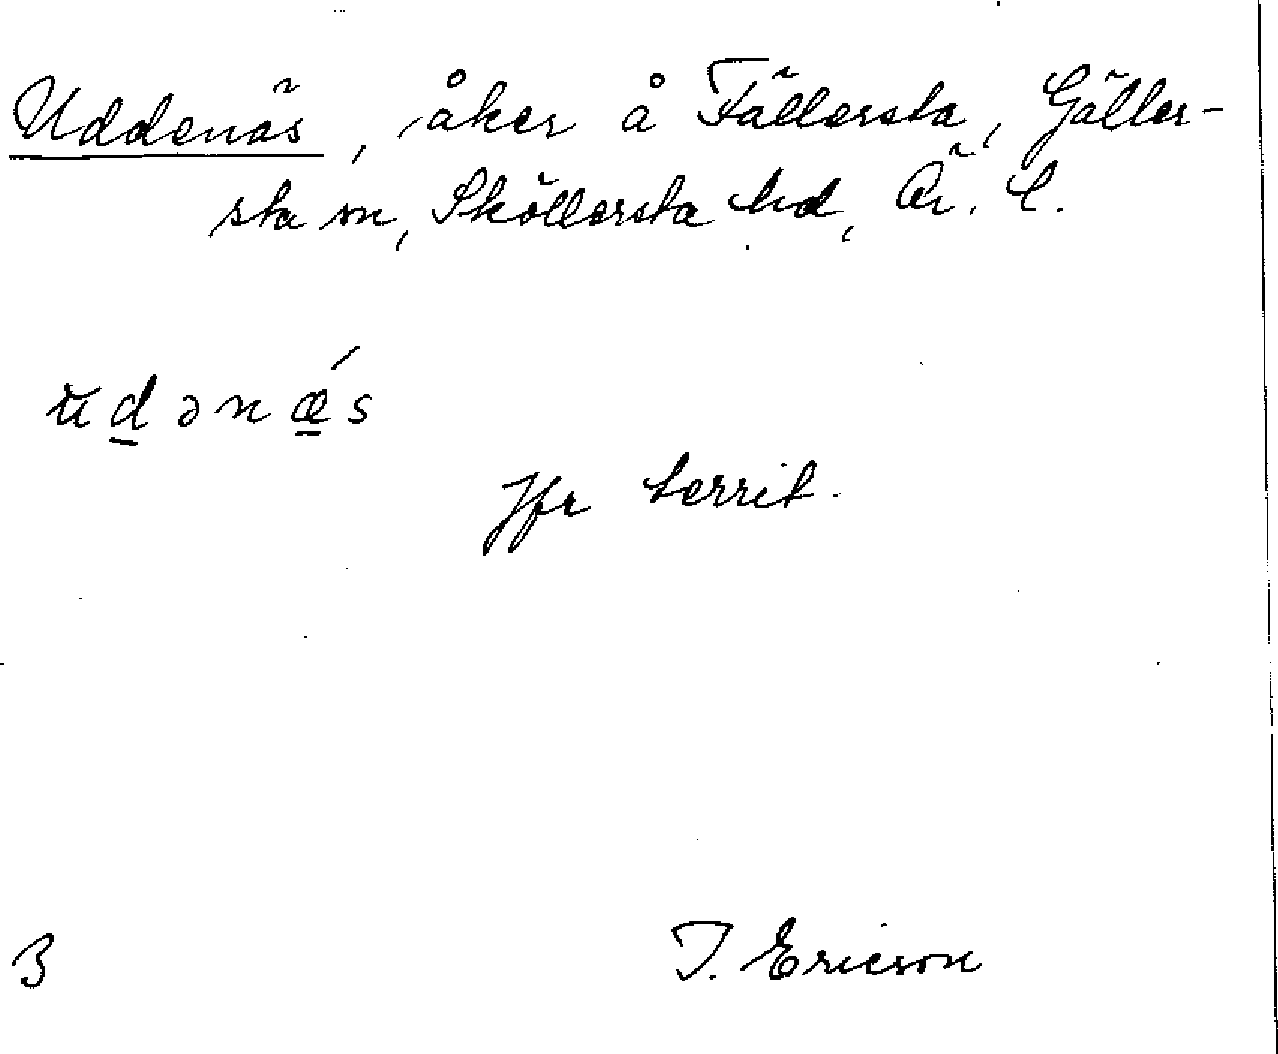 Uddenäs, åker å Fällersta, Gäller-
sta sn, Sköllersta hd, Ör. l.
udənæ´s
Jfr territ.
3
T. Ericson